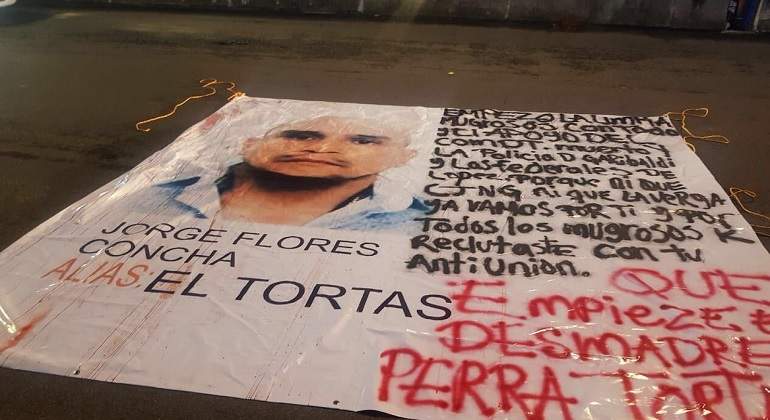 JORGE FLORES
CONCHA
ALIAS: EL TORTAS
EMPEZO LA LIMPIA
MUGROSOS CON TODO
Y EL APOYO DE
LA POLICIA D GARIBALDI
Y LOS FEDERALES DE
LOPEZ PORQUE NI QUE
CJNG NI QUE LA VERGA
YA VAMOS POR TI Y POR
Todos los mugrosos K
Reclutaste con tu
Anti Union.
QUE
Empieze e
DESMADRE
PERRA